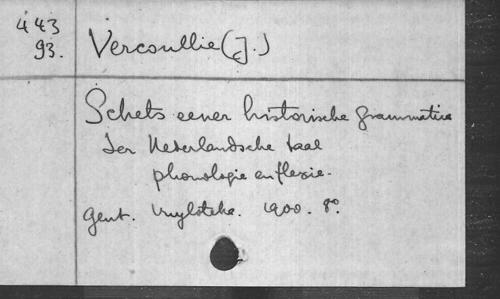 443
93.
Vercoullie (J.)
Schets eener historische grammatica
der Nederlandsche taal
phonologie en flexie.
Gent. Vuylsteke. 1900. 8º.